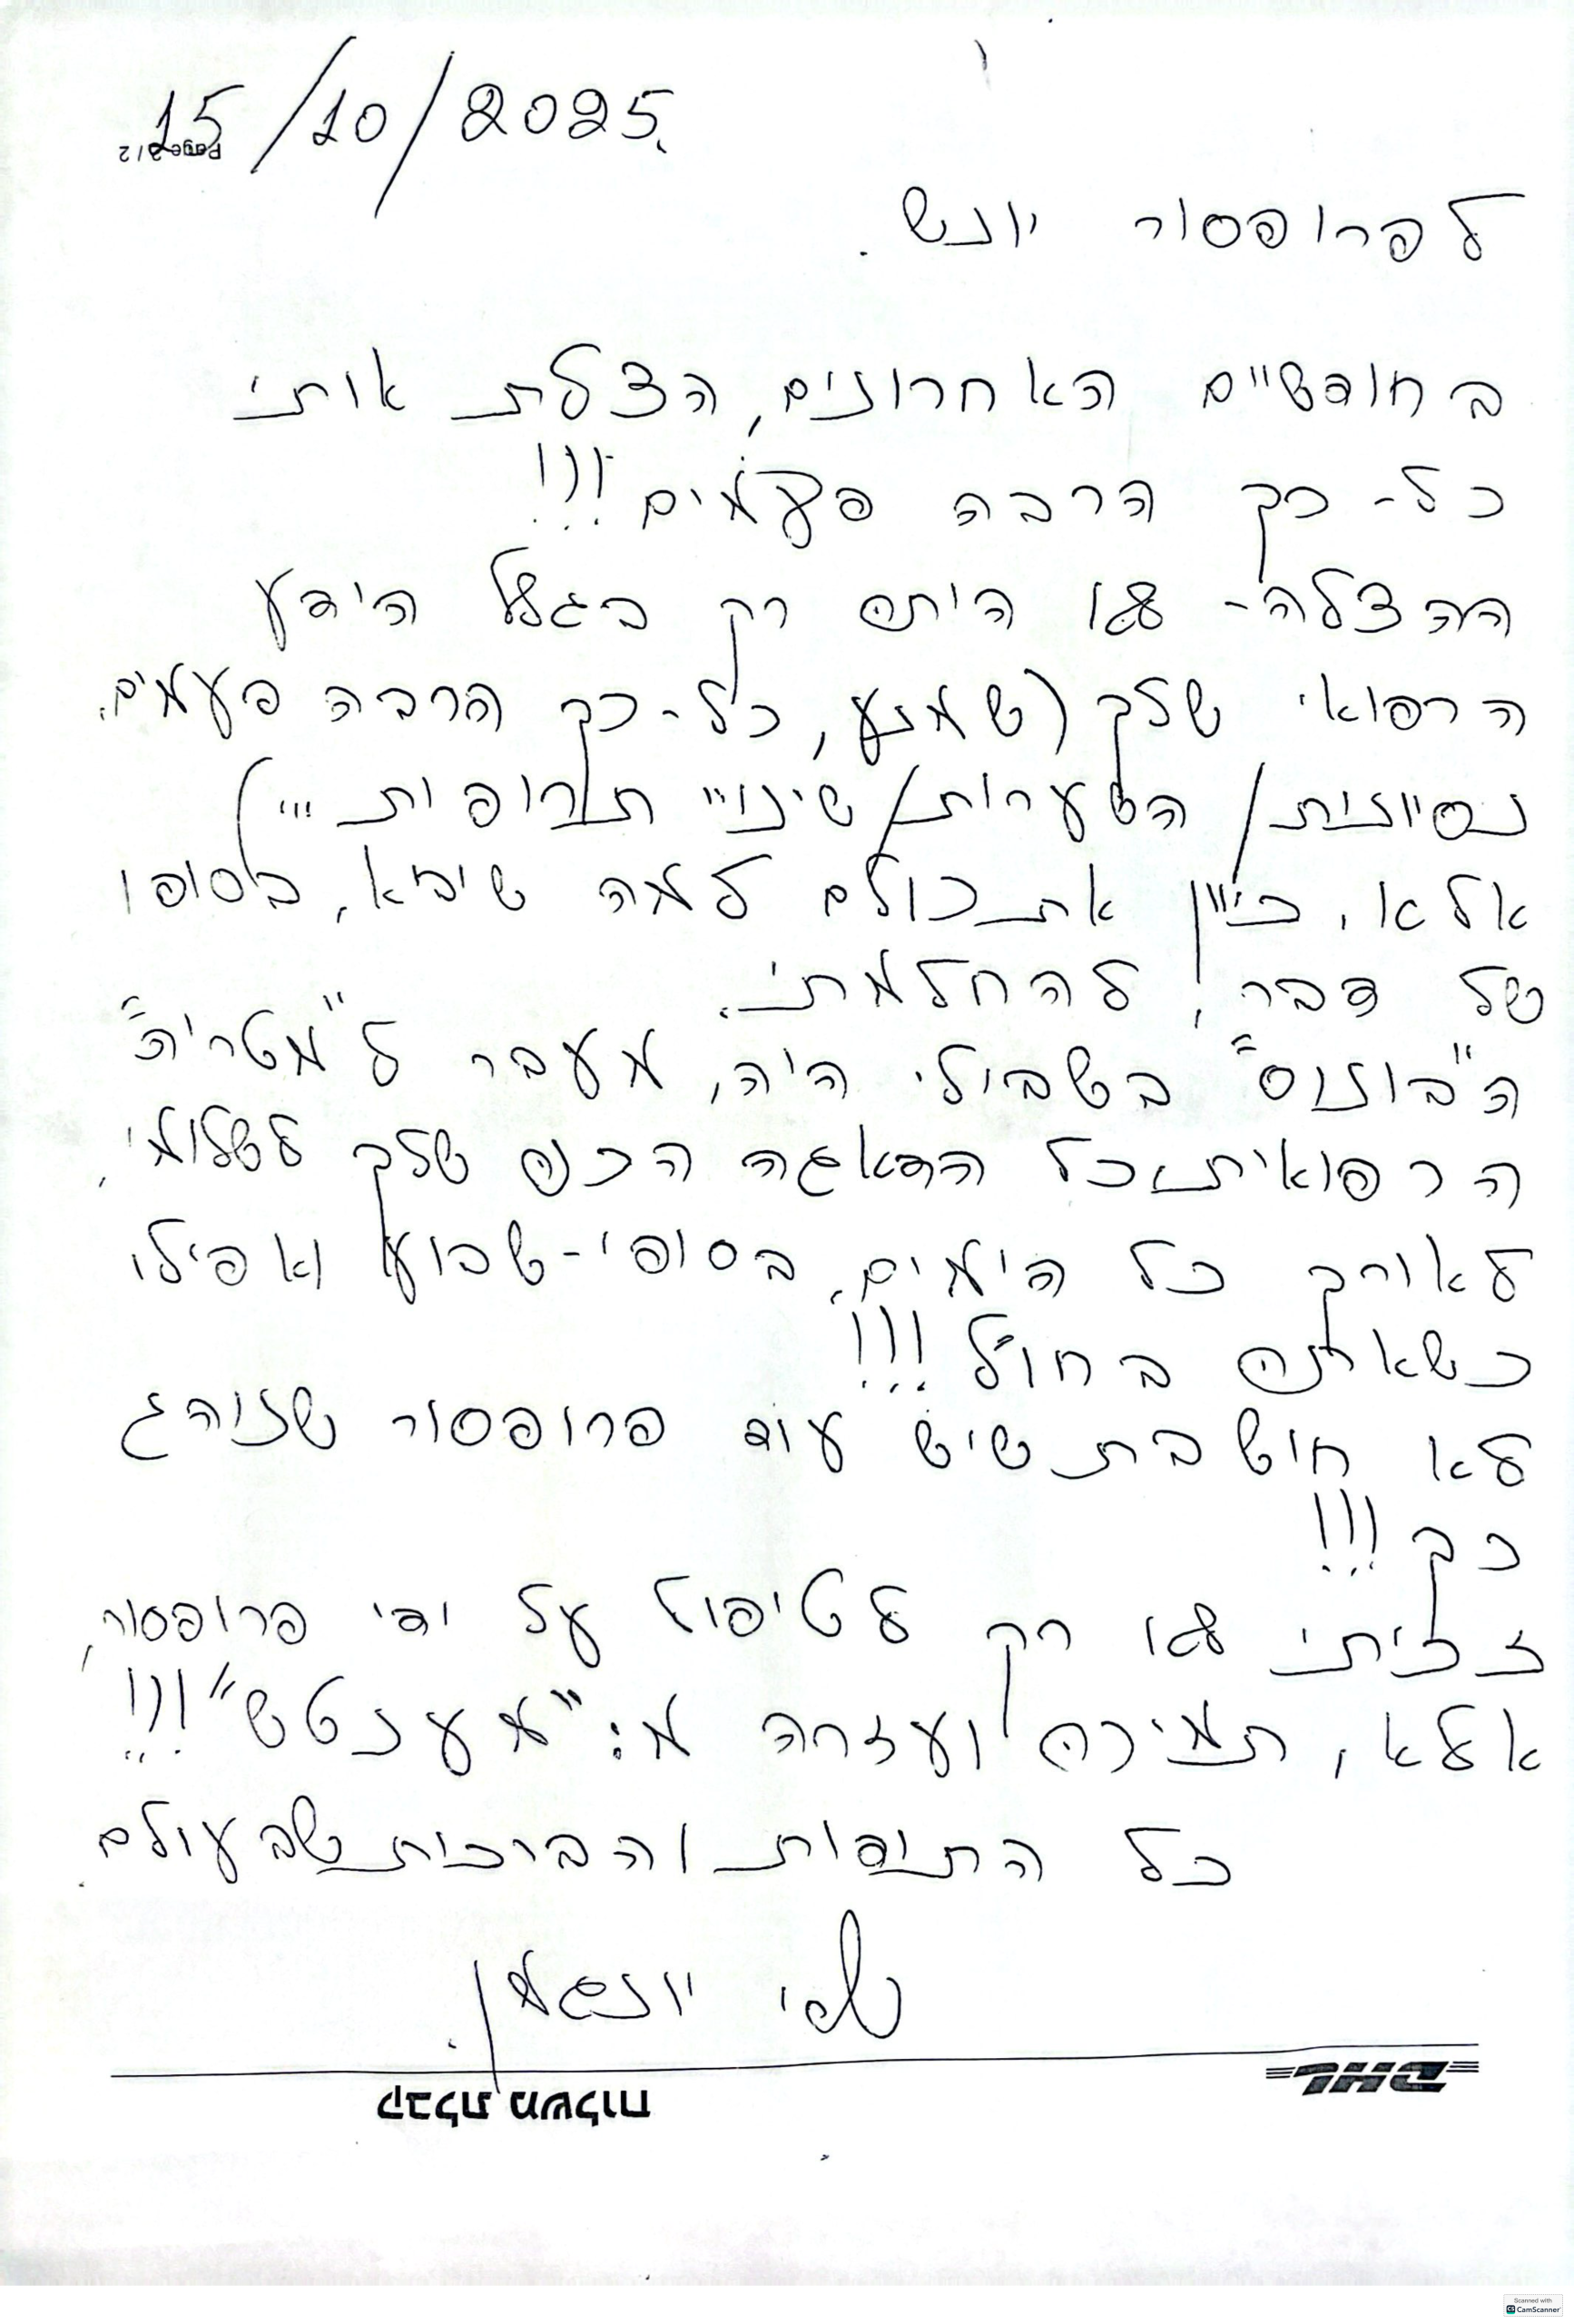 15/10/2025
Page 2 / 2
לפרופסור יונש.
בחודשיים האחרונים, הצלת אותי
כל-כך הרבה פעמים!!!
ההצלה- לא היתה רק בגלל הידע
הרפואי שלך (שמנע, כל-כך הרבה פעמים,
נסיונות/ השערות/ שינויי תרופות...)
אלא, כיוון את כולם למה שיביא, בסופו
של דבר, להחלמתי.
ה"בונוס" בשבילי היה, מעבר ל"מטריה"
הרפואית, כל הדאגה הכנה שלך לשלומי,
לאורך כל הימים, בסופי-שבוע ואפילו
כשאתה בחו"ל!!!
לא חישבת שיש עוד פרופסור שנוהג
כך!!!
זכיתי לא רק לטיפול על ידי פרופסור,
אלא, תמיכה ועזרה מ: "מענטש"!!!
כל התודות והברכות שבעולם.
יונגמן.
DHL
קבלת משלוח
Scanned with
CS CamScanner